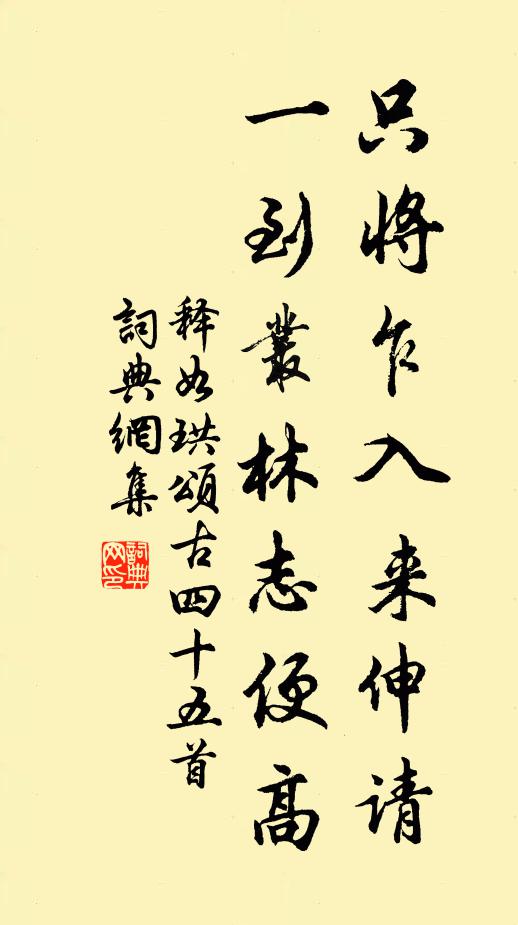 只將乍入来伸请
一到叢林志便高
释如珙頌古四十五首
詞典網集
詞典网印